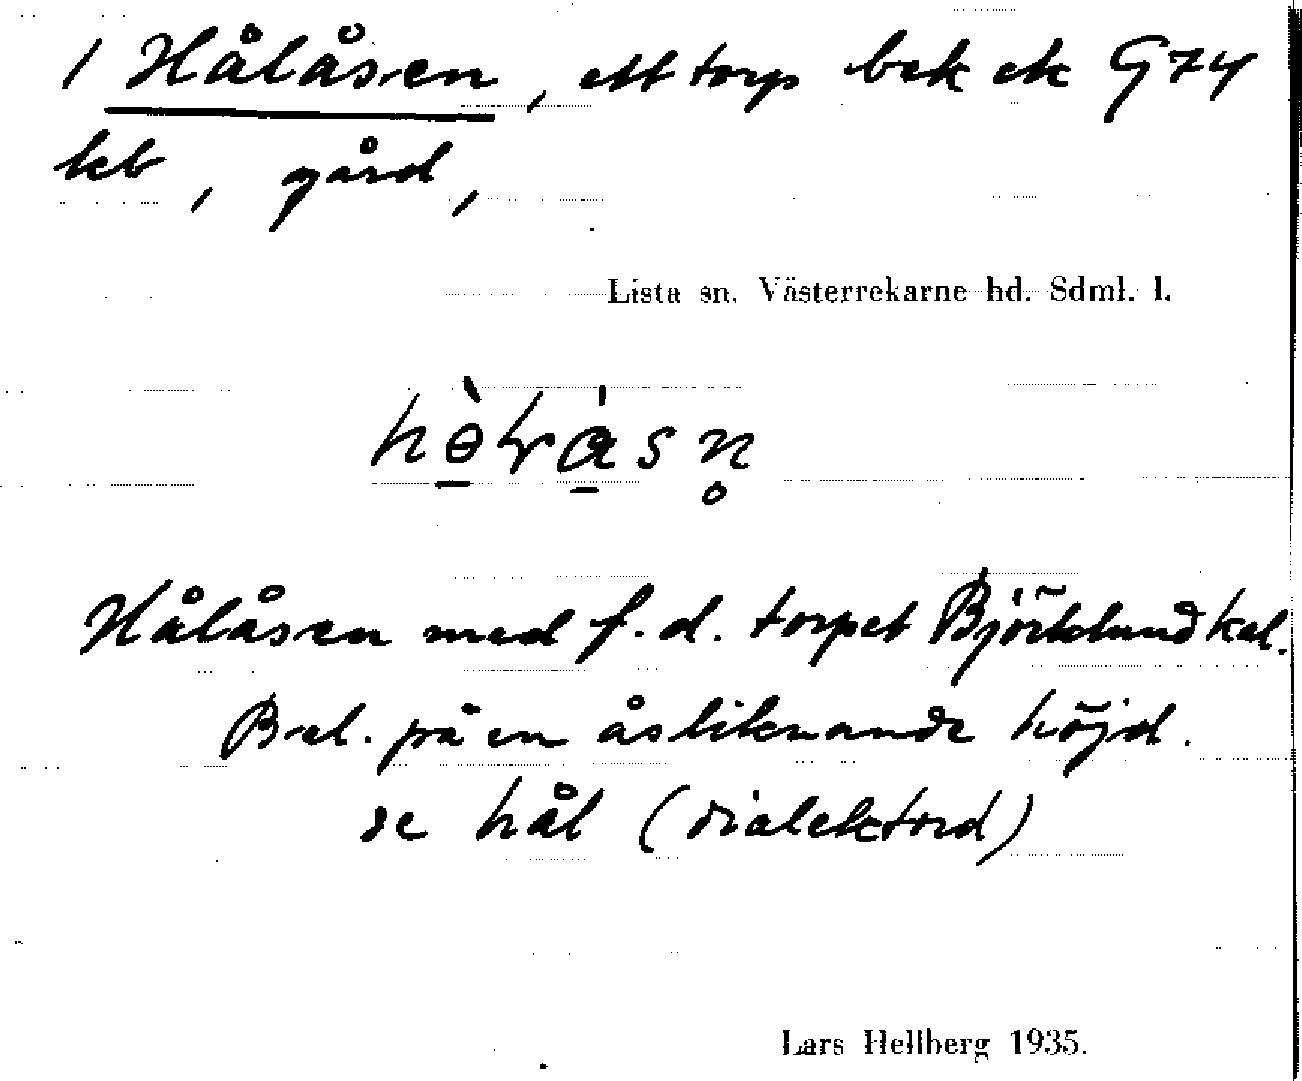 1 Hålåsen, ett torp bek ek G74
kb, gård,
Lista sn. Västerrekarne hd. Sdml. l.
Hålåsen med f.d. torpet Björklund kal.
Bel. på en åsliknande höjd.
se hål (dialektord)
Lars Hellberg 1935.